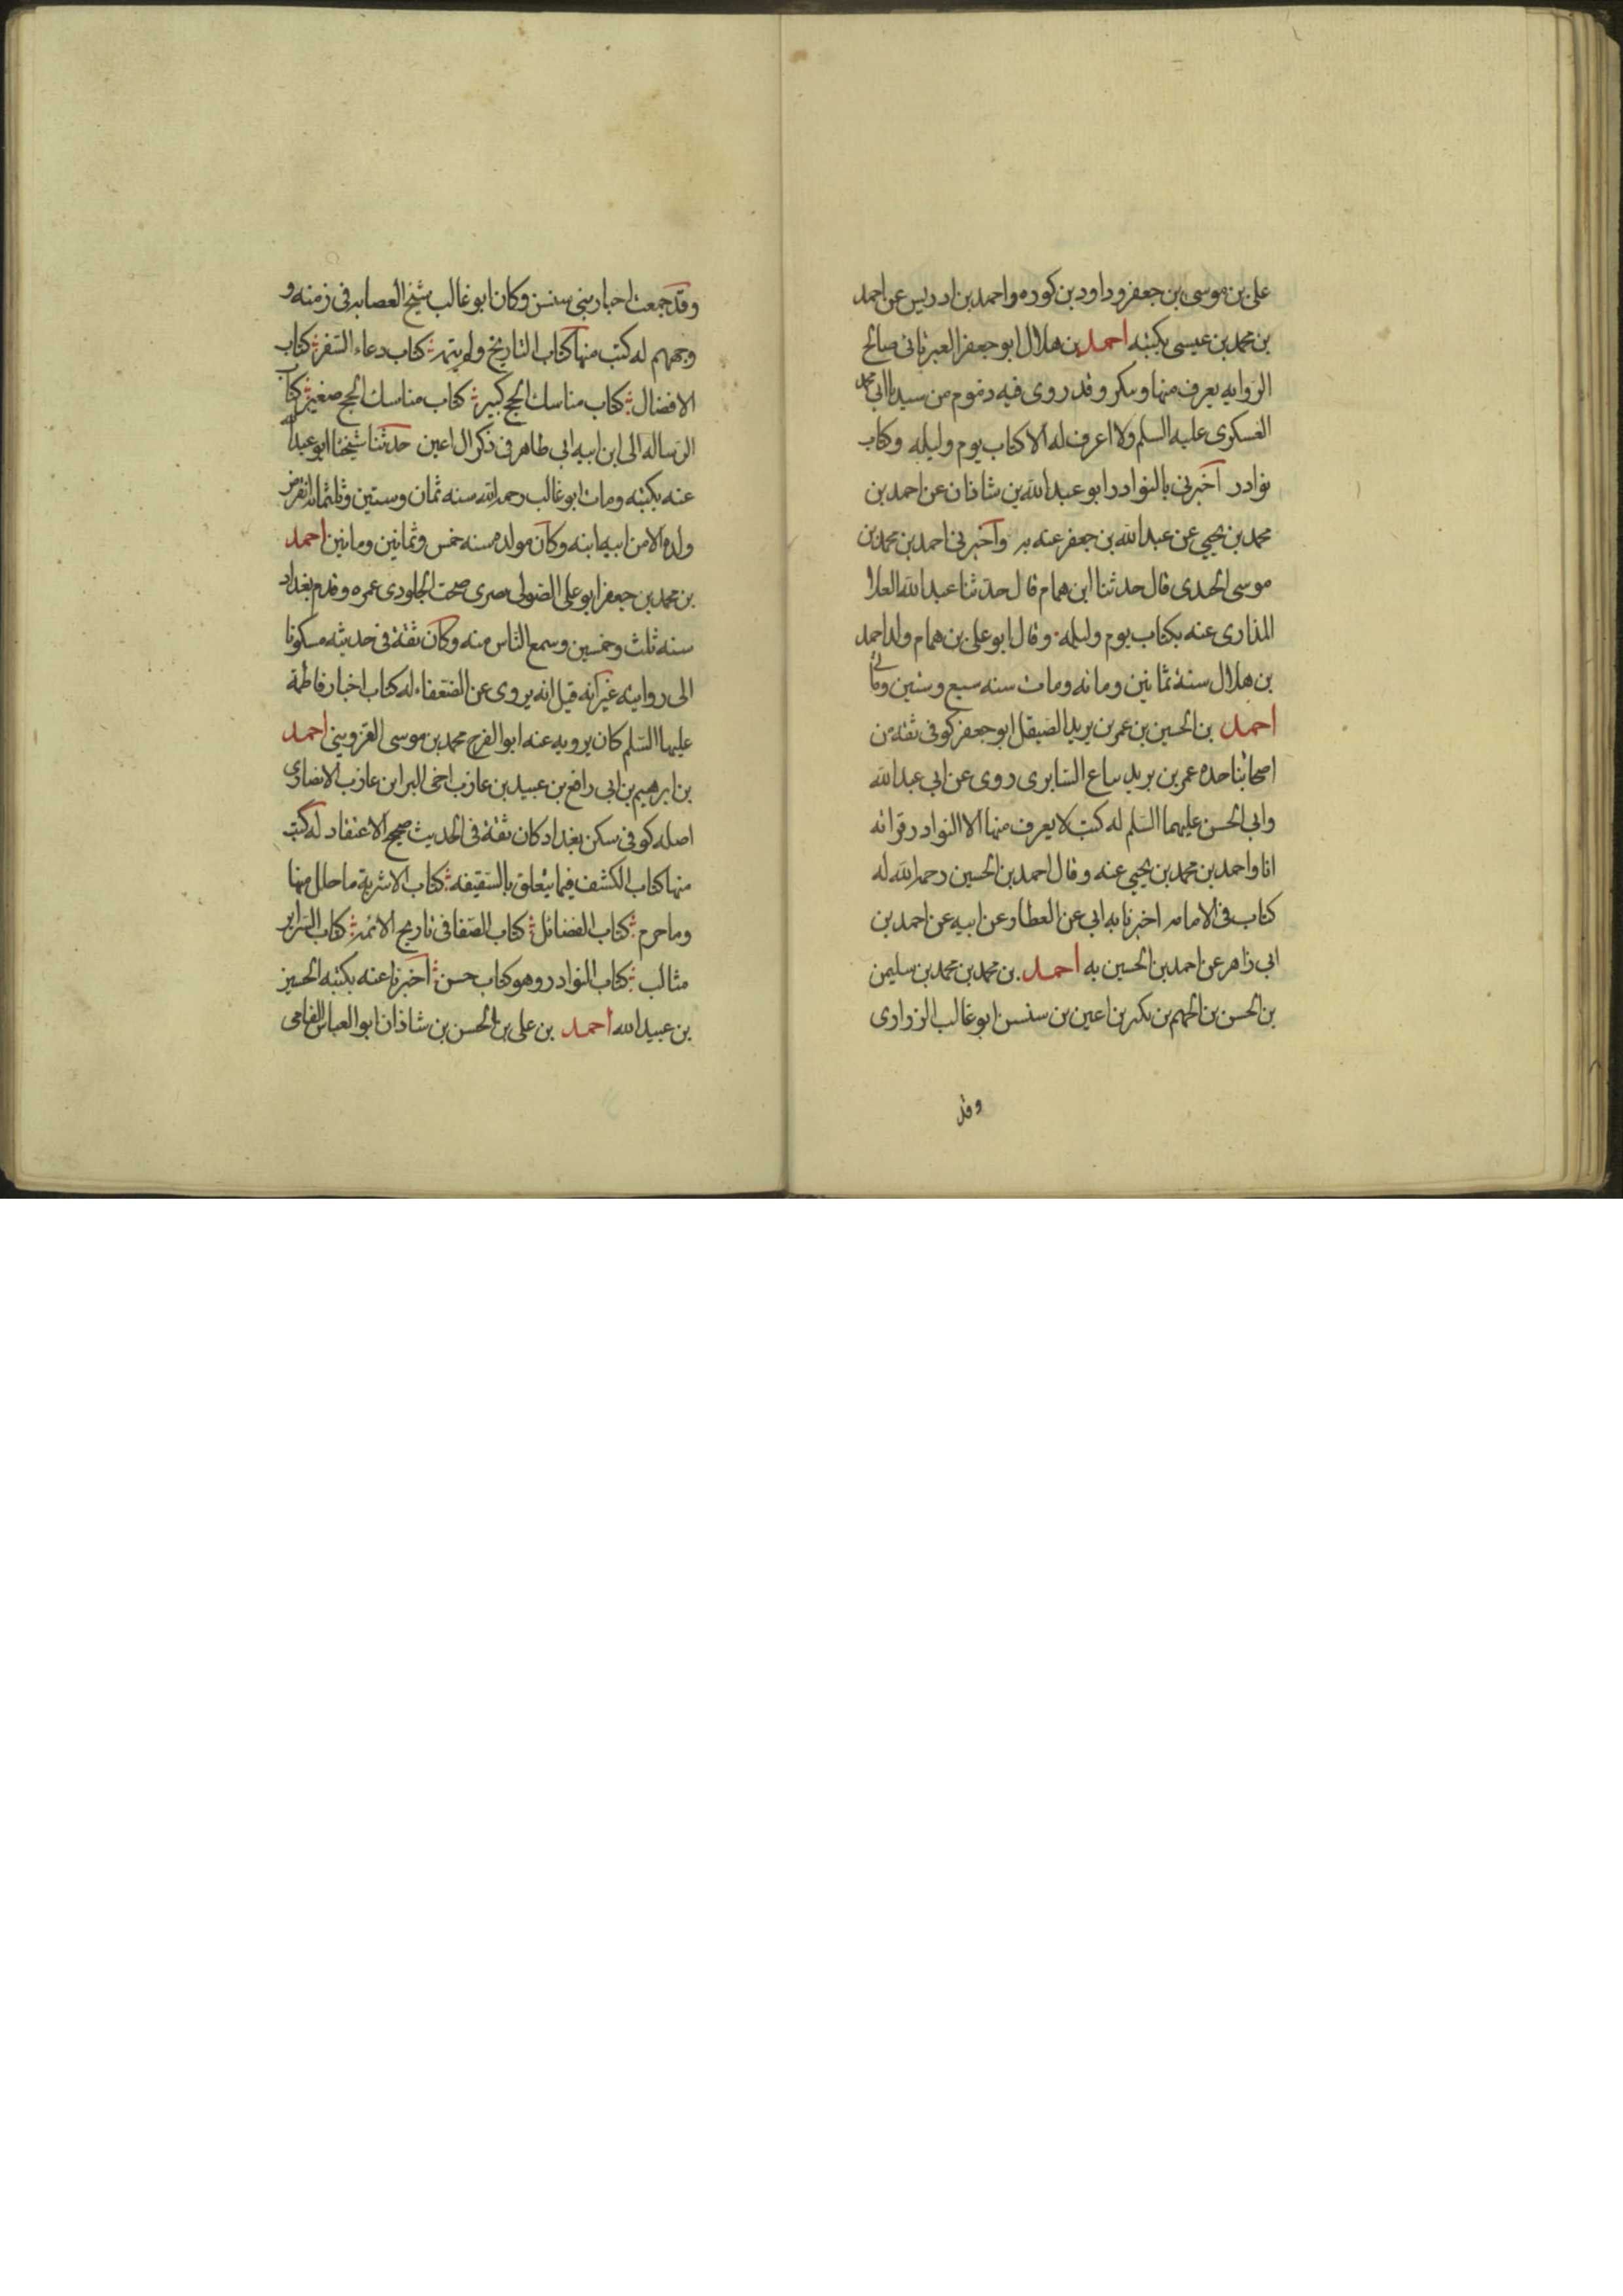 علی بن موسی بن جعفر وداود بن كوره واحمد بن ادریس عن احمد
بن محمد بن عیسی بكتبه احمد بن هلال ابو جعفر العبرتائی صالح
الروایه یعرف منها وینكر وقد روی فیه ذموم من سیدنا ابی محمد
العسكری علیه السلم ولا اعرف له الا كتاب یوم ولیله وكتاب
نوادر اخبرنی بالنوادر ابو عبدالله بن شاذان عن احمد بن
محمد بن یحیی عن عبدالله بن جعفر عنه به واخبرنی احمد بن محمد بن
موسی الجندی قال حدثنا ابن همام قال حدثنا عبدالله العلا
المذاری عنه بكتاب یوم ولیله وقال ابو علی بن همام ولد احمد
بن هلال سنة ثمانین ومائه ومات سنه سبع وستین ومأتی
احمد بن الحسین بن عمر بن یزید الصیقل ابو جعفر كوفی ثقة من
اصحابنا جده عمر بن یزید بیاع السابری روی عن ابی عبدالله
وابی الحسن علیهما السلم له كتب لا یعرف منها الا النوادر قرائه
انا واحمد بن محمد بن یحیی عنه وقال احمد بن الحسین رحمه الله له
كتاب فی الامامه اخبرنا به ابی عن العطار عن ابیه عن احمد بن
ابی زاهر عن احمد بن الحسین به احمد بن محمد بن محمد بن سلیمن
بن الحسن بن الجهم بن بكیر بن اعین بن سنسن ابو غالب الزراری
وقد
وقد جمعت اخبار بنی سنسن وكان ابو غالب شیخ العصابه فی زمنه و
وجههم له كتب منها كتاب التاریخ ولم یتمه كتاب دعاء السفر كتاب
الافضال كتاب مناسك الحج كبیر كتاب مناسك الحج صغیر كتاب
الرساله الی ابن ابنه ابی طاهر فی ذكر ال اعین حدثنا شیخنا ابو عبدالله
عنه بكتبه ومات ابو غالب رحمه الله سنه ثمان وستین وثلثمائه انقرض
ولده الا من ابنه ابنه وكان مولده سنه خمس وثمانین ومأتین احمد
بن محمد بن جعفر ابو علی الصولی بصری صحب الجلودی عمره وقدم بغداد
سنه ثلث وخمسین وسمع الناس منه وكان ثقة فی حدیثه مسكونا
الی روایته غیر انه قیل انه یروی عن الضعفاء له كتاب اخبار فاطمة
علیها السلم كان یرویه عنه ابو الفرج محمد بن موسی القزوینی احمد
بن ابرهیم بن ابی رافع بن عبید بن عازب اخی البرا ابن عازب الانصاری
اصله كوفی سكن بغداد كان ثقة فی الحدیث صحیح الاعتقاد له كتب
منها كتاب الكشف فیما یتعلق بالسقیفه كتاب الاشربة ما حلل منها
وما حرم كتاب الفضائل كتاب الصفا فی تاریخ الائمه كتاب السرایر
مثالب كتاب النوادر وهو كتاب حسن اخبرنا عنه بكتبه الحسین
بن عبیدالله احمد بن علی بن الحسن بن شاذان ابو العباس الفامی